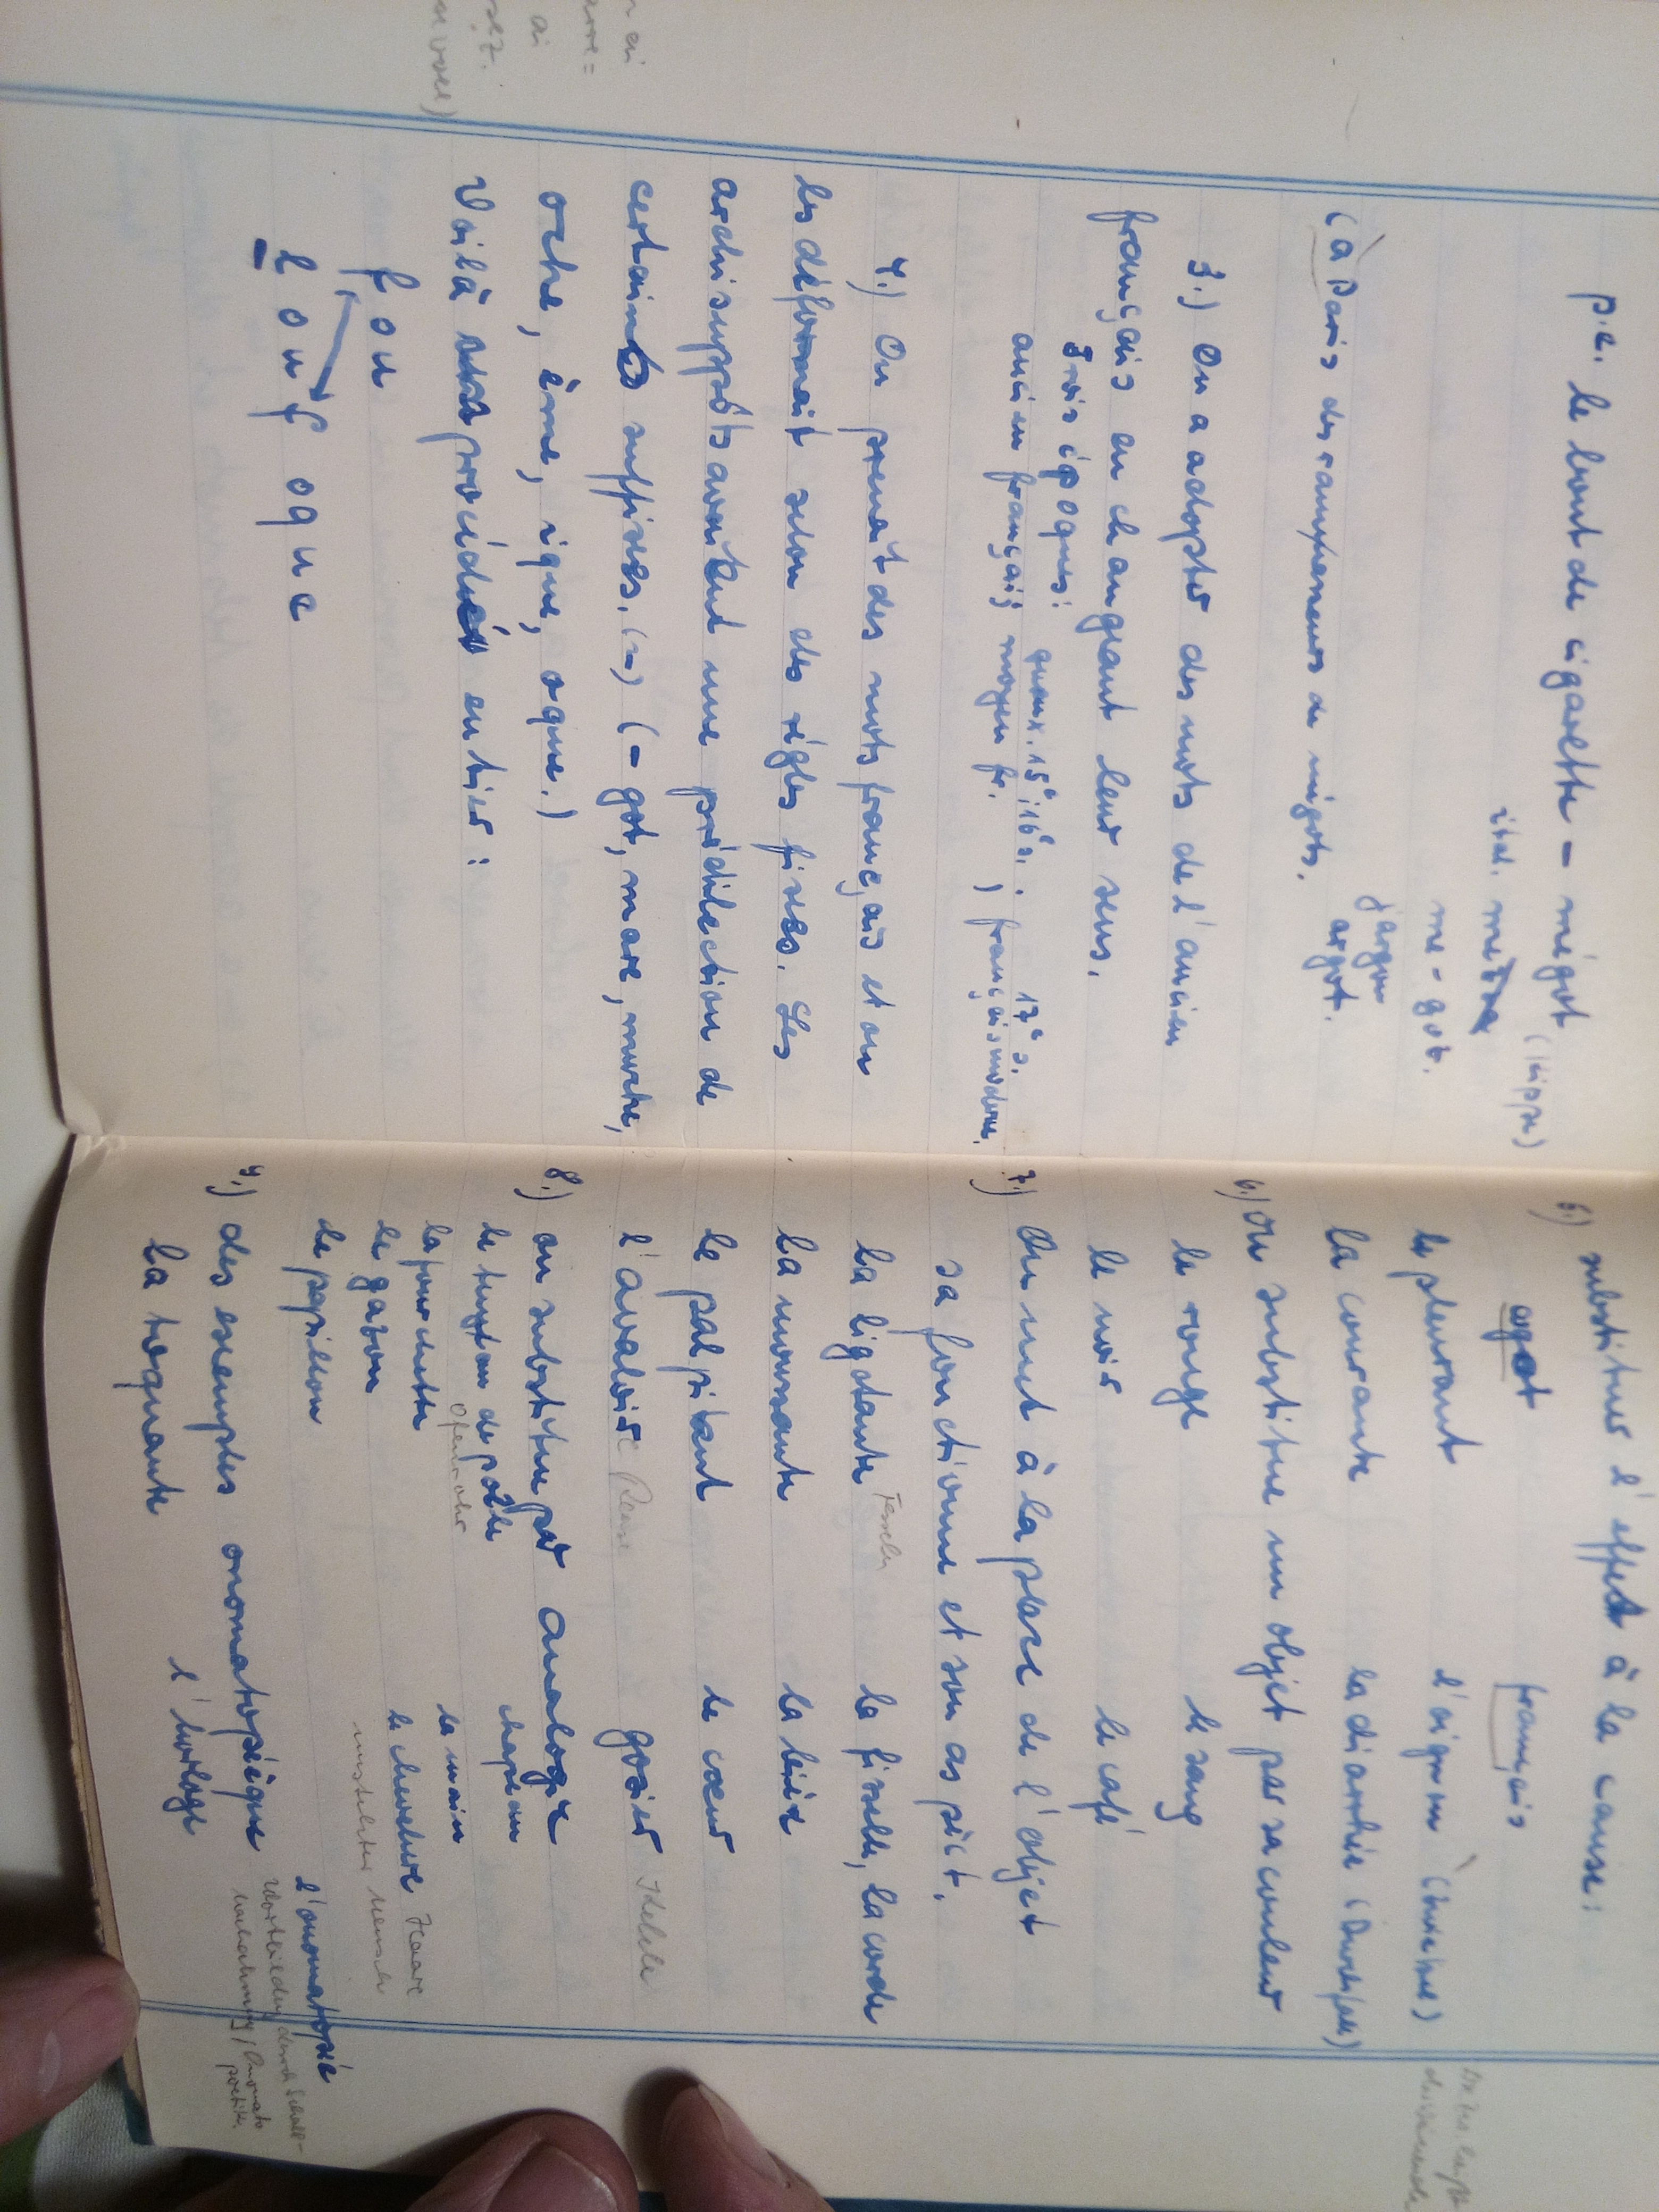 p.e. le bout de cigarette – mégot (Kippe)
ital.
me-got.
jargon
argot.
(à Paris des ramasseurs de mégots.
3.) On a adopter des mots de l'ancien
français en changeant leur sens.
Trois époques:
15e, 16e s. 17e s.
ancien français; moyen fr. ; français moderne.
4.) On prenait des mots français et on
les déformait selon des règles fixes. Les
archisuppôts avaient une prédilection de
certains suffixes. (–got, mare, muche,
oche, ème, ique, oque.)
Voilà procédé entier:
fou
louf oque
5.) substituer l'effet à la cause:
argot français
le pleurant l'oignon (Zwiebel)
la courante la diarrhée (Durchfall)
6.) On substitue un objet par sa couleur
le rouge le sang
le noir le café
7.) On met à la place de l'objet
sa fonctionne et son aspect.
la ligotante Fesseln la ficelle, la corde
la moussante la bière
le palpitant le cœur
l'avaloire gosier Kehle
8.) on substitue par analogie
le tuyau de poêle chapeau
Ofenrohr
la fourchette la main
le gazon le chevelure Haare
le papillon
l'onomatopée
Wortbildung durch Schall-
nachahmung, Onomato
poetik.
9.) des exemples onomatopéique
la toquante l'horloge